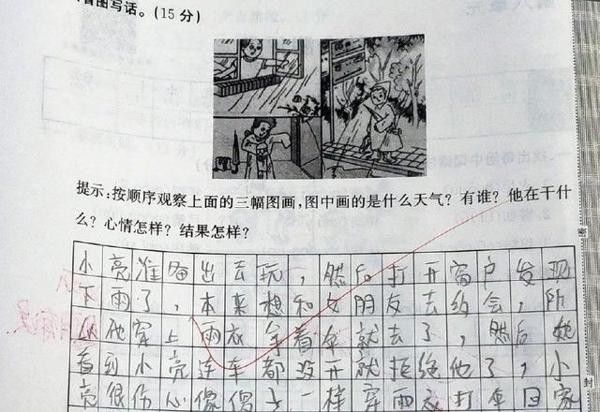 看图写话。(15分)
提示:按顺序观察上面的三幅图画,图中画的是什么天气?有谁?他在干什
么?心情怎样?结果怎样?
小亮准备出去玩,然后打开窗户发现
下雨了,本来想和女朋友去约会,所
以他穿上雨衣拿着伞就去了,然后她
看到小亮连车都没开就拒绝他了,小
亮很伤心像傻子一样穿雨衣打伞回家
密
封